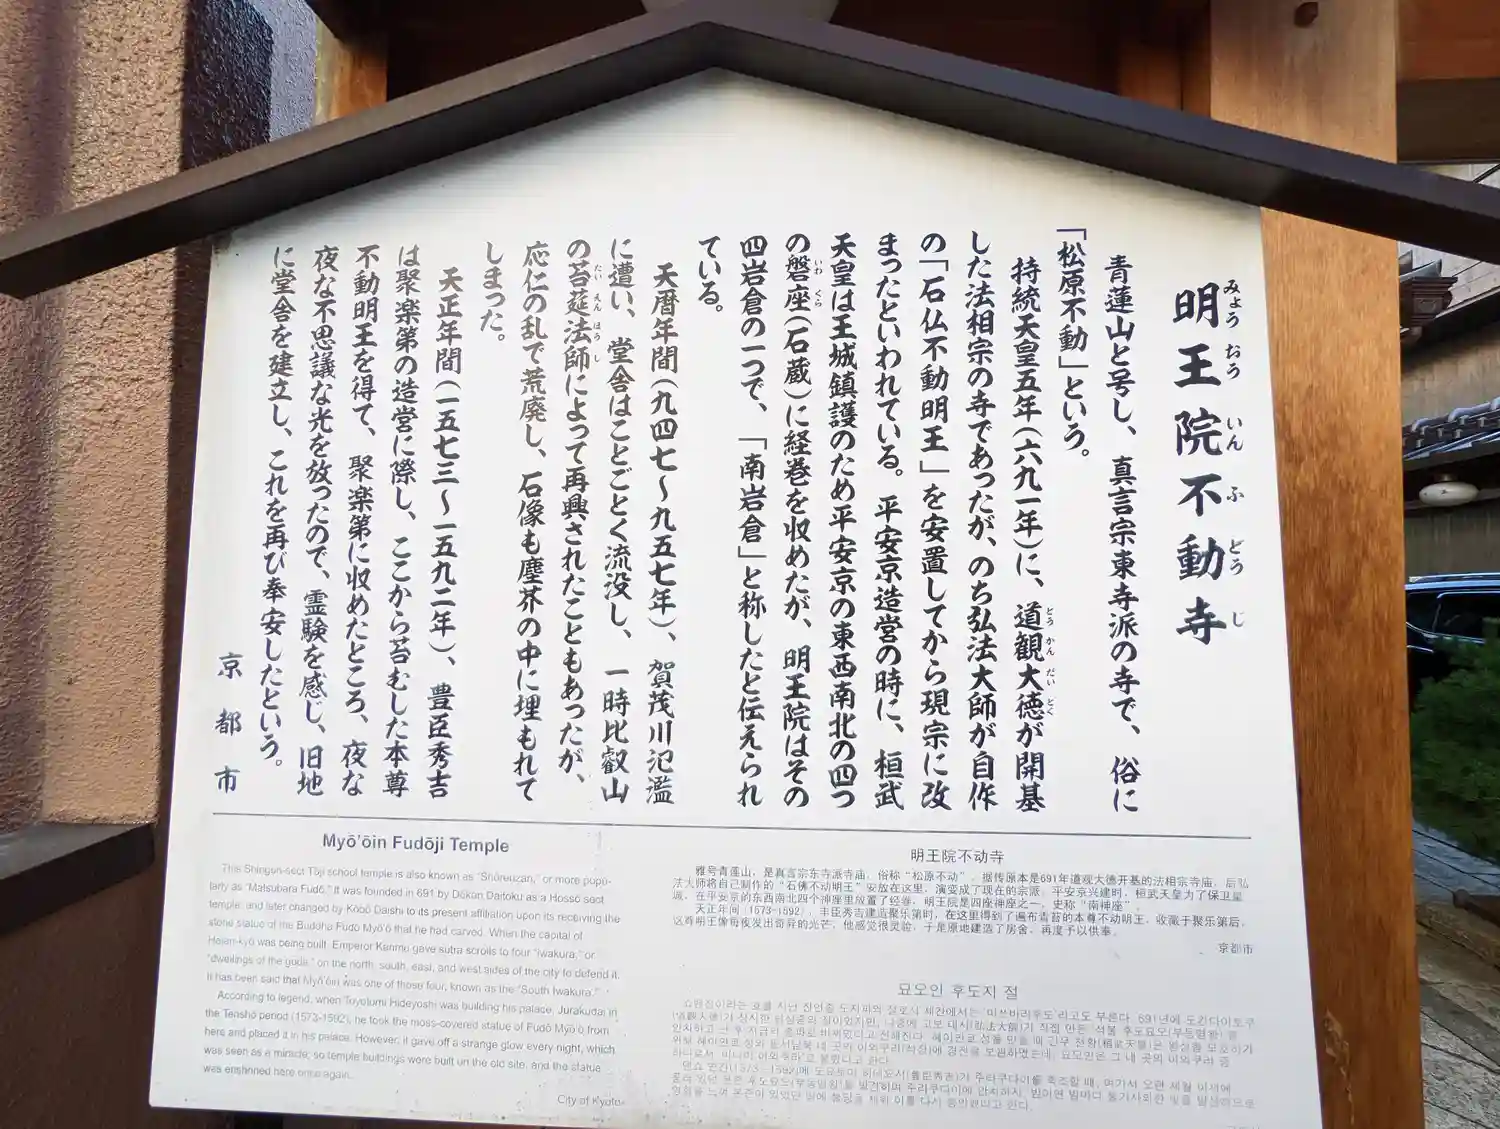 明王院不動寺
みょう おう いん ふ どう じ
青蓮山と号し、真言宗東寺派の寺で、俗に
「松原不動」という。
持統天皇五年(六九一年)に、道観大徳が開基
どう かん だい とく
した法相宗の寺であったが、のち弘法大師が自作
の「石仏不動明王」を安置してから現宗に改
まったといわれている。平安京造営の時に、桓武
天皇は王城鎮護のため平安京の東西南北の四つ
の磐座(石蔵)に経巻を収めたが、明王院はその
いわ くら
四岩倉の一つで、「南岩倉」と称したと伝えられ
ている。
天暦年間(九四七〜九五七年)、賀茂川氾濫
に遭い、堂舎はことごとく流没し、一時比叡山
の苔莚法師によって再興されたこともあったが、
たい えん ほう し
応仁の乱で荒廃し、石像も塵芥の中に埋もれて
しまった。
天正年間(一五七三〜一五九二年)、豊臣秀吉
は聚楽第の造営に際し、ここから苔むした本尊
不動明王を得て、聚楽第に収めたところ、夜な
夜な不思議な光を放ったので、霊験を感じ、旧地
に堂舎を建立し、これを再び奉安したという。
京都市
Myō'ōin Fudōji Temple
This Shingon-sect Tōji school temple is also known as "Shōrenzan," or more popu-
larly as "Matsubara Fudō." It was founded in 691 by Dōkan Daitoku as a Hossō sect
temple, and later changed by Kōbō Daishi to its present affiliation upon its receiving the
stone statue of the Buddha Fudō Myō'ō that he had carved. When the capital of
Heian-kyō was being built, Emperor Kanmu gave sutra scrolls to four "iwakura," or
"dwellings of the gods," on the north, south, east, and west sides of the city to defend it.
It has been said that Myō'ōin was one of those four, known as the "South Iwakura."
According to legend, when Toyotomi Hideyoshi was building his palace, Jurakudai in
the Tenshō period (1573-1592), he took the moss-covered statue of Fudō Myō'ō from
here and placed it in his palace. However, it gave off a strange glow every night, which
was seen as a miracle, so temple buildings were built on the old site, and the statue
was enshrined here once again.
City of Kyoto
明王院不动寺
雅号青莲山，是真言宗东寺派寺庙，俗称“松原不动”。据传原本是691年道观大德开基的法相宗寺庙，后弘
法大师将自己制作的“石佛不动明王”安放在这里，演变成了现在的宗派。平安京兴建时，桓武天皇为了保卫皇
城，在平安京的东西南北四个神座里放置了经卷，明王院是四座神座之一，史称“南神座”。
天正年间（1573-1592），丰臣秀吉建造聚乐第时，在这里得到了遍布青苔的本尊不动明王，收藏于聚乐第后，
这尊明王像每夜发出奇异的光芒，他感觉很灵验，于是原地建造了房舍，再度予以供奉。
京都市
묘오인 후도지 절